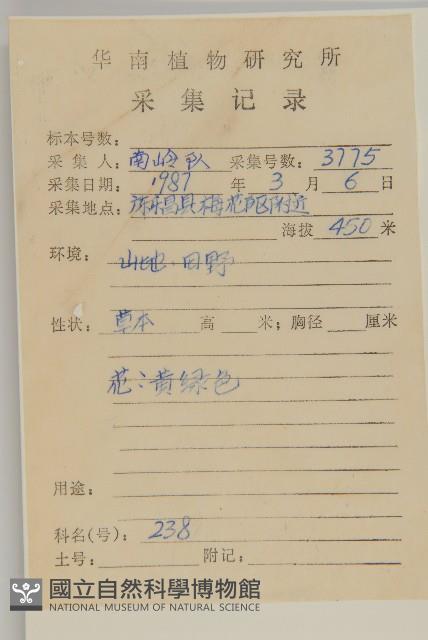 华南植物研究所
采集记录
标本号数：
采集人：南岭队 采集号数：3775
采集日期：1987年3月6日
采集地点：乐昌县梅花区附近
海拔 450 米
环境：山地、田野
性状：草本 高 米；胸径 厘米
花：黄绿色
用途：
科名(号)：238
土号： 附记：
國立自然科學博物館
NATIONAL MUSEUM OF NATURAL SCIENCE